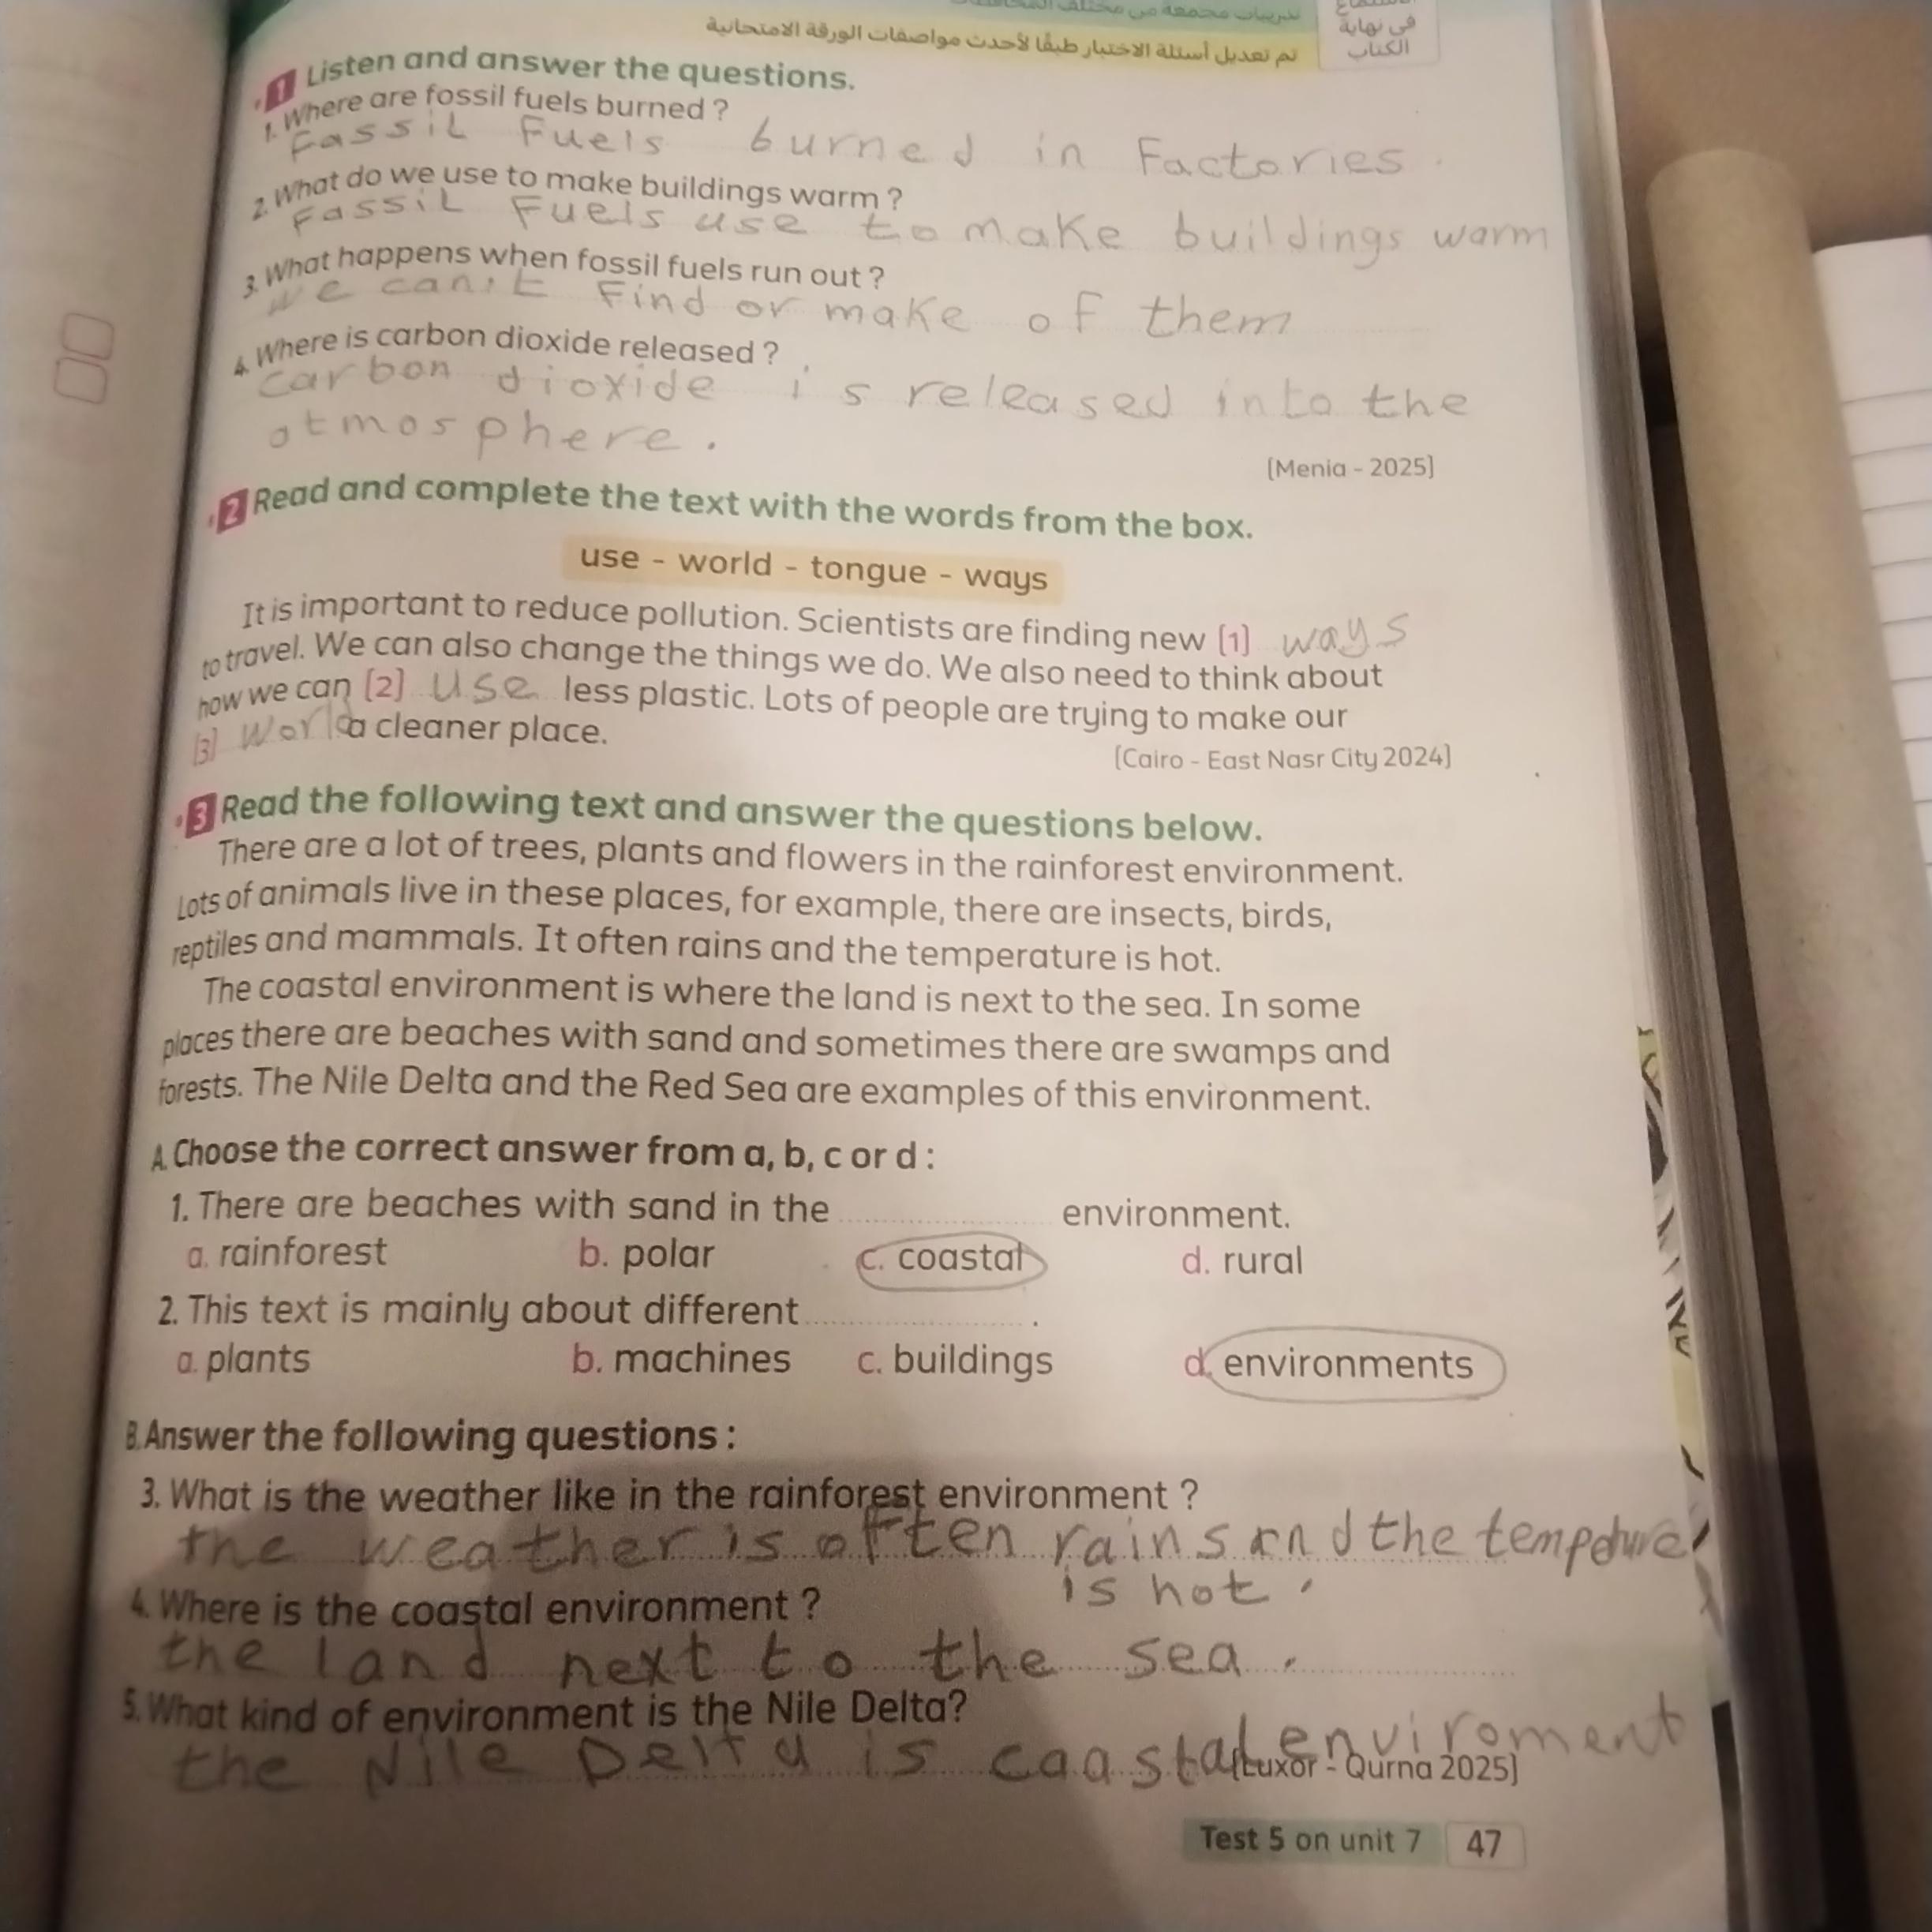 تدريبات مجمعة من مختلف
تم تعديل أسئلة الاختبار طبقًا لأحدث مواصفات الورقة الامتحانية
فى نهاية
الكتاب
1 Listen and answer the questions.
1. Where are fossil fuels burned ?
Fassil Fuels burned in Factories.
2. What do we use to make buildings warm ?
Fassil Fuels use to make buildings warm
3. What happens when fossil fuels run out ?
we can't Find or make of them
4. Where is carbon dioxide released ?
carbon dioxide is released into the
atmosphere.
(Menia - 2025)
2 Read and complete the text with the words from the box.
use - world - tongue - ways
It is important to reduce pollution. Scientists are finding new (1) ways
to travel. We can also change the things we do. We also need to think about
how we can (2) use less plastic. Lots of people are trying to make our
(3) world a cleaner place.
(Cairo - East Nasr City 2024)
3 Read the following text and answer the questions below.
There are a lot of trees, plants and flowers in the rainforest environment.
Lots of animals live in these places, for example, there are insects, birds,
reptiles and mammals. It often rains and the temperature is hot.
The coastal environment is where the land is next to the sea. In some
places there are beaches with sand and sometimes there are swamps and
forests. The Nile Delta and the Red Sea are examples of this environment.
A. Choose the correct answer from a, b, c or d :
1. There are beaches with sand in the .................... environment.
a. rainforest b. polar c. coastal d. rural
2. This text is mainly about different .................... .
a. plants b. machines c. buildings d. environments
B. Answer the following questions :
3. What is the weather like in the rainforest environment ?
the weather is often rains and the
is hot.
4. Where is the coastal environment ?
the land next to the sea.
5. What kind of environment is the Nile Delta?
the Nile Delta is caastal enviroment
(Luxor - Qurna 2025)
Test 5 on unit 7 47